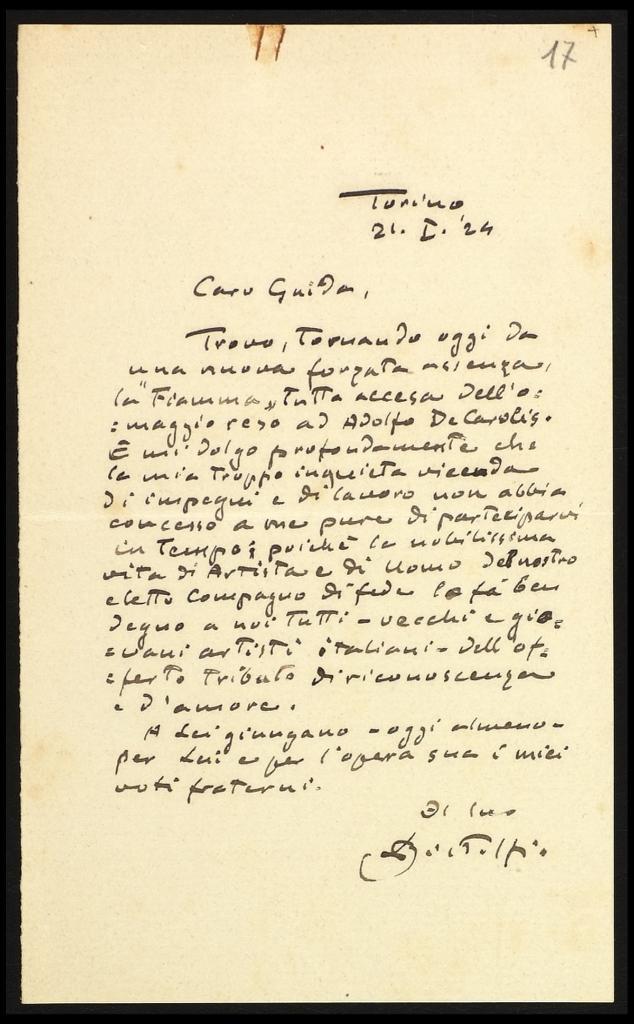 17
Torino
21. I. '24
Caro Guida,
Trovo, tornando oggi da
una nuova forzata assenza,
la "Fiamma„ tutta accesa dell'o=
=maggio reso ad Adolfo De Carolis.
E mi dolgo profondamente che
la mia troppo inquieta vicenda
di impegni e di lavoro non abbia
concesso a me pure di parteciparvi
in tempo; poichè la nobilissima
vita di Artista e di Uomo del nostro
eletto Compagno di fede lo fà ben
degno a noi tutti - vecchi e gio=
=vani artisti italiani - dell'of=
=ferto tributo di riconoscenza
e d'amore.
A Lei giungano - oggi almeno -
per Lui e per l'opera sua i miei
voti fraterni.
Il suo